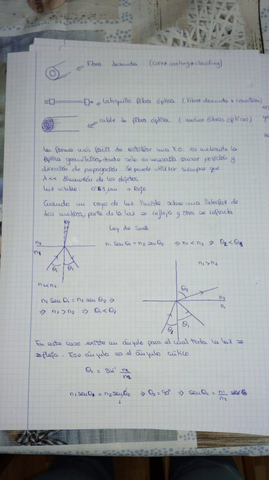 Fibra desnuda (core + coating + cladding)
Latiguillo fibra óptica (fibra desnuda + conectores)
cable de fibra óptica (muchas fibras ópticas)
La forma más fácil de estudiar una F.O. es mediante la
óptica geométrica, donde solo es necesario conocer posición y
dirección de propagación. Se puede utilizar siempre que
λ << dimensión de los objetos.
Luz visible:
Cuando un rayo de luz incide sobre una interfaz de
dos medios, parte de la luz se refleja y otra se refracta
Ley de Snell
n₁ senθ₁ = n₂ senθ₂ ⇒ n₁ < n₂ ⇒ θ₂ < θ₁
n₂
n₁
θ₁ θ₁
n₁ > n₂
n₁ < n₂
n₁ senθ₁ = n₂ senθ₂ ⇒
⇒ n₂ > n₁ ⇒ θ₂ < θ₁
θ₂
n₂
n₁
θ₁ θ₁
En este caso existe un ángulo para el cual toda la luz se
refleja. Ese ángulo es el ángulo crítico
n₁ senθ₁ = n₂ senθ₂ ⇒ θ₂ = 90° ⇒